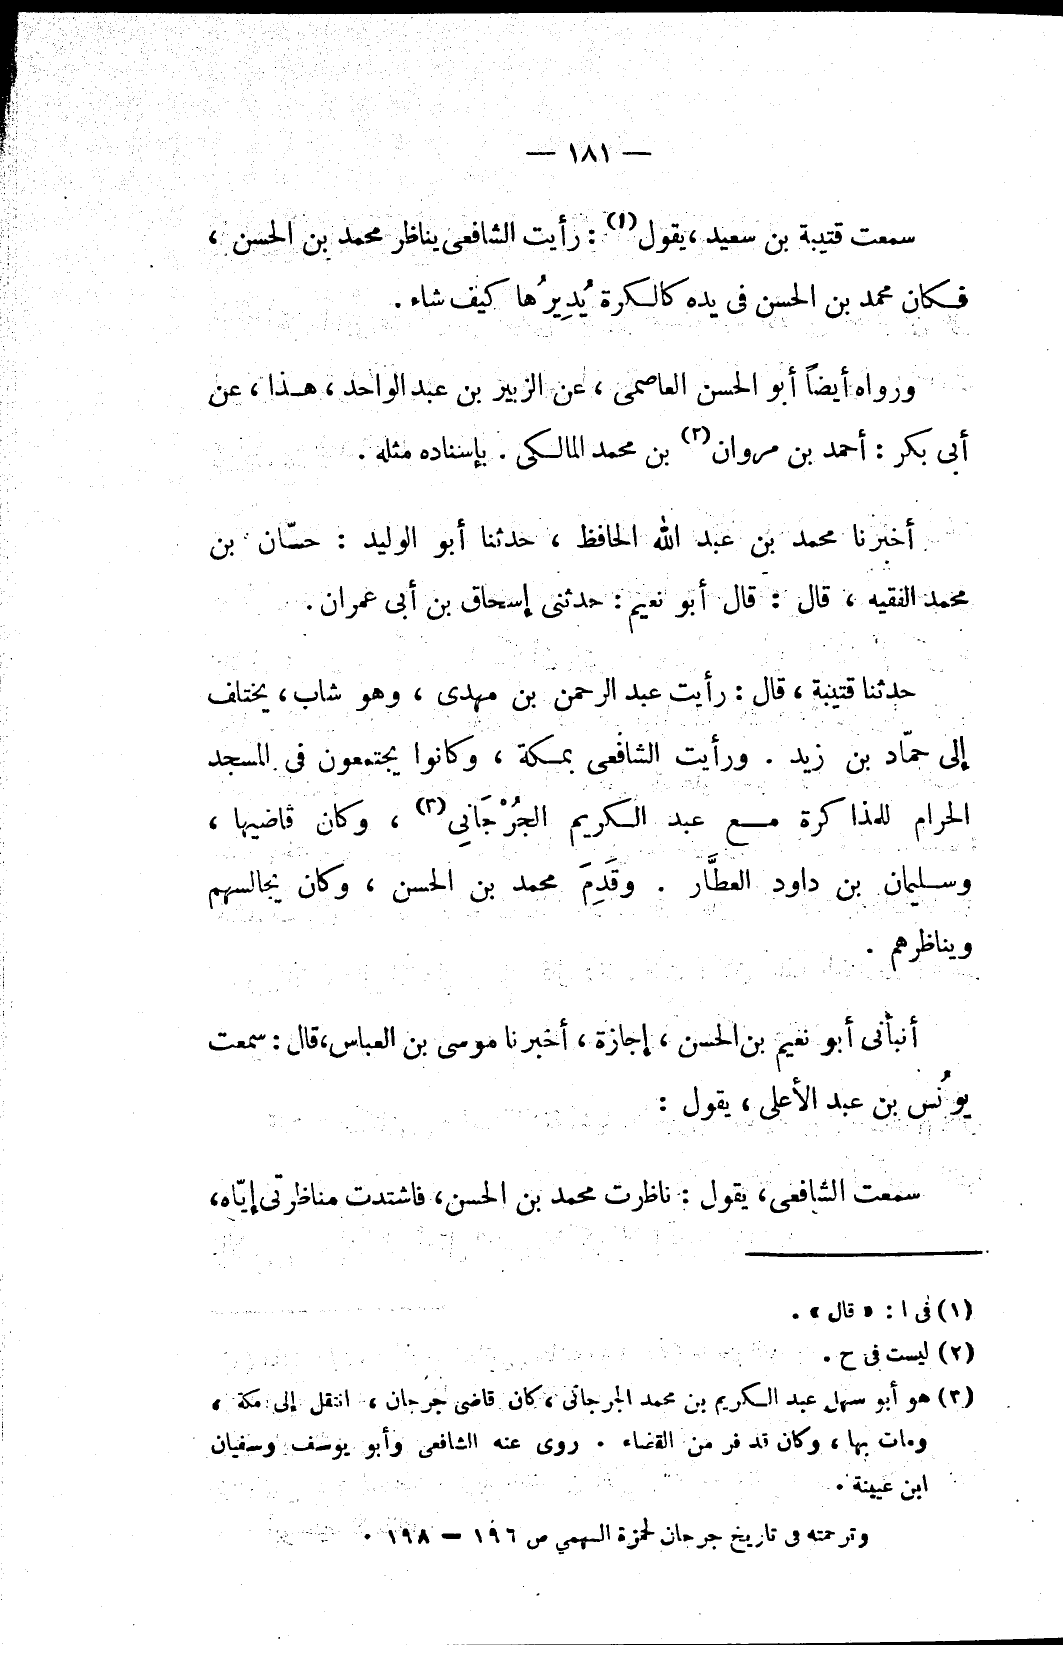 — ١٨١ —
سمعت قتيبة بن سعيد ، يقول (١) : رأيت الشافعى يناظر محمد بن الحسن ،
فكان محمد بن الحسن فى يده كالكرة يُدِيرُها كيف شاء .
ورواه أيضاً أبو الحسن العاصمى ، عن الزبير بن عبد الواحد ، هذا ، عن
أبى بكر : أحمد بن مروان (٢) بن محمد المالكى . بإسناده مثله .
أخبرنا محمد بن عبد الله الحافظ ، حدثنا أبو الوليد : حسّان بن
محمد الفقيه ، قال : قال أبو نعيم : حدثنى إسحاق بن أبى عمران .
حدثنا قتيبة ، قال : رأيت عبد الرحمن بن مهدى ، وهو شاب ، يختلف
إلى حمّاد بن زيد . ورأيت الشافعى بمكة ، وكانوا يجتمعون فى المسجد
الحرام للمذاكرة مع عبد الكريم الجُرْجَانِى (٣) ، وكان قاضيها ،
وسليمان بن داود العطَّار . وقَدِمَ محمد بن الحسن ، وكان يجالسهم
ويناظرهم .
أنبأنى أبو نعيم بن الحسن ، إجازة ، أخبرنا موسى بن العباس ، قال : سمعت
يونُس بن عبد الأعلى ، يقول :
سمعت الشافعى ، يقول : ناظرت محمد بن الحسن ، فاشتدت مناظرتى إيّاه ،
(١) فى ا : « قال » .
(٢) ليست فى ح .
(٣) هو أبو سهل عبد الكريم بن محمد الجرجانى ، كان قاضى جرجان ، انتقل إلى مكة ،
ومات بها ، وكان قد فر من القضاء . روى عنه الشافعى وأبو يوسف وسفيان
ابن عيينة .
وترجمته فى تاريخ جرجان لحمزة السهمي ص ١٩٦ — ١٩٨ .